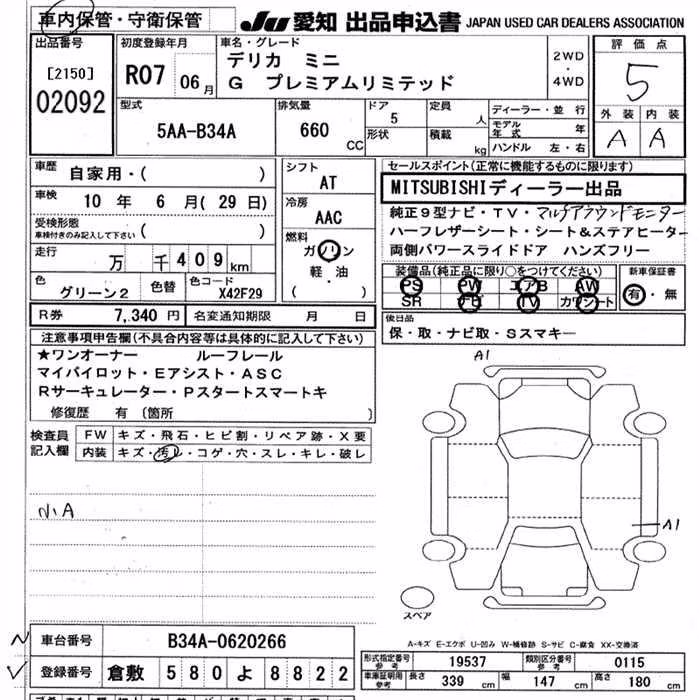 車内保管・守衛保管
JU 愛知 出品申込書 JAPAN USED CAR DEALERS ASSOCIATION
出品番号
[2150]
02092
初度登録年月
R07 06月
車名・グレード
デリカ ミニ
G プレミアムリミテッド
2WD
・
4WD
評価点
5
外装 内装
A A
型式
5AA-B34A
排気量
660 CC
ドア
5
形状
定員
人
積載
kg
ディーラー・並行
モデル年式 年
ハンドル 左・右
車歴
自家用・( )
車検
10 年 6 月( 29 日)
受検形態
車検付きのみ記入して下さい ( )
走行
万 千 4 0 9 km
色
グリーン2
色替
色コード
X42F29
シフト
AT
冷房
AAC
燃料
ガソリン
軽・油
( )
セールスポイント(正常に機能するものに限ります)
MITSUBISHIディーラー出品
純正9型ナビ・TV・マルチアラウンドモニター
ハーフレザーシート・シート&ステアヒーター
両側パワースライドドア ハンズフリー
装備品(純正品に限り○をつけてください)
PS PW エアB AW
SR ナビ TV カワシート
新車保証書
有・無
R券 7,340 円
名変通知期限 月 日
後日品
保・取・ナビ取・Sスマキー
注意事項申告欄(不具合内容等は具体的に記入して下さい)
★ワンオーナー ルーフレール
マイパイロット・Eアシスト・ASC
Rサーキュレーター・Pスタートスマートキ
修復歴 有 (箇所 )
検査員
記入欄
FW キズ・飛石・ヒビ割・リペア跡・X要
内装 キズ・汚レ・コゲ・穴・スレ・キレ・破レ
小A
A1
A1
スペア
A-キズ E-エクボ U-凹み W-補修跡 S-サビ C-腐食 XX-交換済
車台番号 B34A-0620266
登録番号 倉敷 580 よ 8822
形式指定番号 参考 19537
類別区分番号 参考 0115
車庫証明用 参考 長さ 339 cm 幅 147 cm 高さ 180 cm